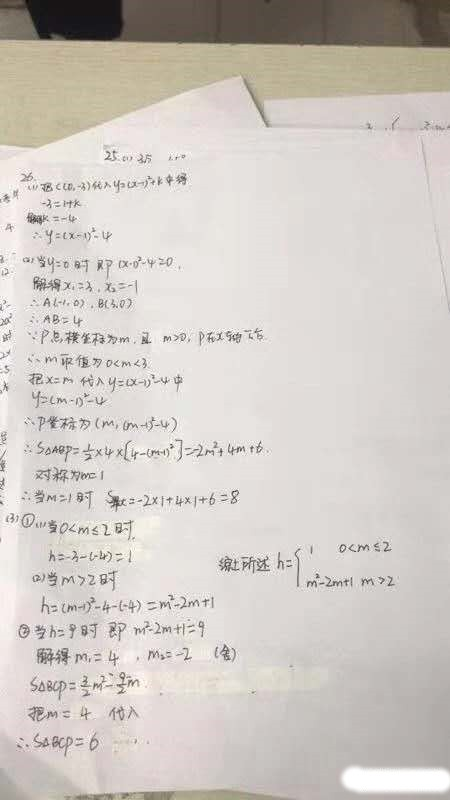 25.(1) 35
26.
(1) 把C(0,-3)代入y=(x-1)²+k中得
-3=1+k
解得k=-4
∴y=(x-1)²-4
(2)当y=0时 即(x-1)²-4=0,
解得x₁=3,x₂=-1
∴A(-1,0),B(3,0)
∴AB=4
∵P点横坐标为m,且 m>0,P在x轴下方.
∴m取值为0<m<3.
把x=m 代入y=(x-1)²-4中
y=(m-1)²-4
∴P坐标为(m,(m-1)²-4)
∴S△ABP=½×4×[4-(m-1)²]=-2m²+4m+6.
对称为m=1
∴当m=1时 Smax=-2×1+4×1+6=8
(3)①(1)当0<m≤2时
h=-3-(-4)=1
(2)当m>2时
h=(m-1)²-4-(-4)=m²-2m+1
综上所述 h={1 0<m≤2
m²-2m+1 m>2
②当h=9时 即 m²-2m+1=9
解得m₁=4,m₂=-2 (舍)
S△BCP=3/2m²-9/2m
把m=4 代入
∴S△BCP=6